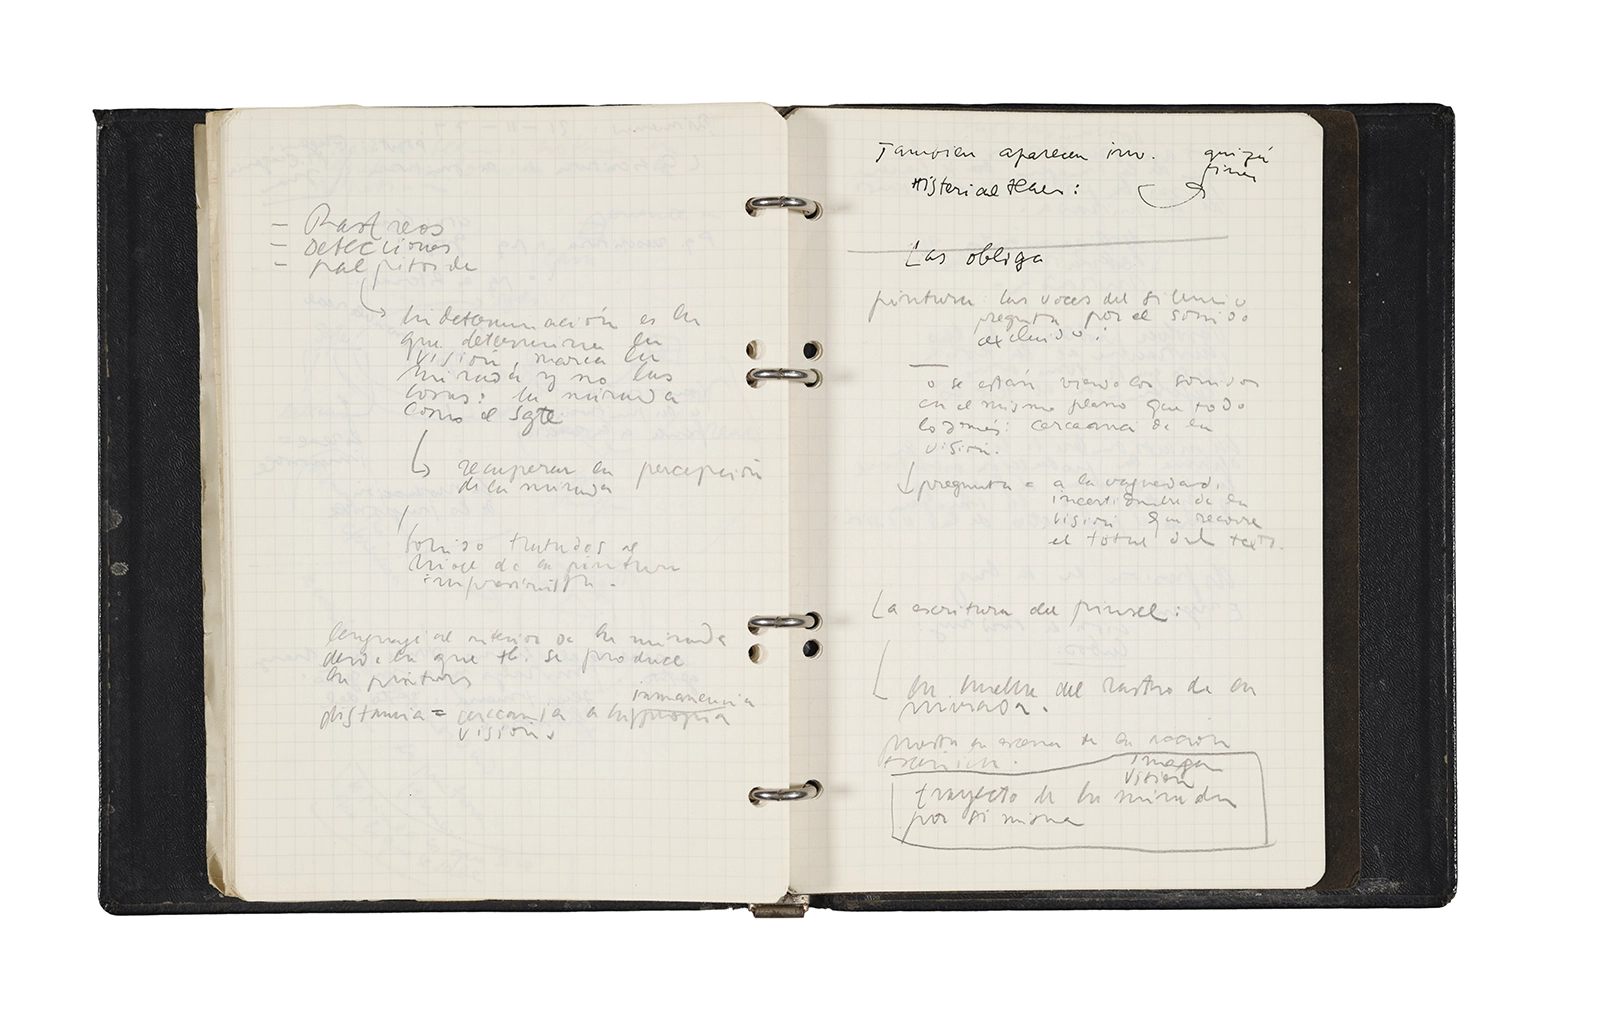 – Rastreos
– Detecciones
– palpitos de
indeterminación es la
que determina la
visión, marca la
mirada y no las
cosas: la mirada
como el sgte.
recuperar la percepción
de la mirada
tratados al
de la pintura
lenguaje al interior de la mirada
desde la que se produce
la pintura
inmanencia
distancia = cercanía a la propia
visión.
También aparecen quizá
Las obliga
pintura: las voces del silencio
pregunta por el sonido
excluido:
o se están viendo los sonidos
en el mismo plano que todo
lo demás: cercanía de la
visión.
pregunta = a la vaguedad,
incertidumbre de la
visión que recorre
el total del texto.
La escritura del pincel:
la huella del rastro de la
mirada.
puesta en escena de la
imagen
visión
trayecto de la mirada
por si misma